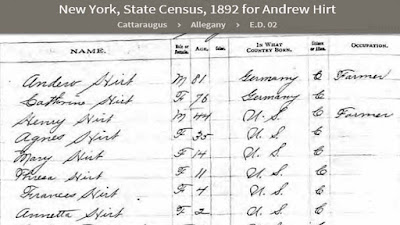 New York, State Census, 1892 for Andrew Hirt
Cattaraugus > Allegany > E.D. 02
NAME. Sex or Female. AGE. Color. IN WHAT COUNTRY BORN. Citizen or Alien. OCCUPATION.
Andrew Hirt M 81 Germany C Farmer
Catherine Hirt F 76 Germany C
Henry Hirt M 44 U.S. C Farmer
Agnes Hirt F 35 U.S. C
Mary Hirt F 14 U.S. C
Thresa Hirt F 11 U.S. C
Frances Hirt F 4 U.S. C
Annetta Hirt F 2 U.S. C